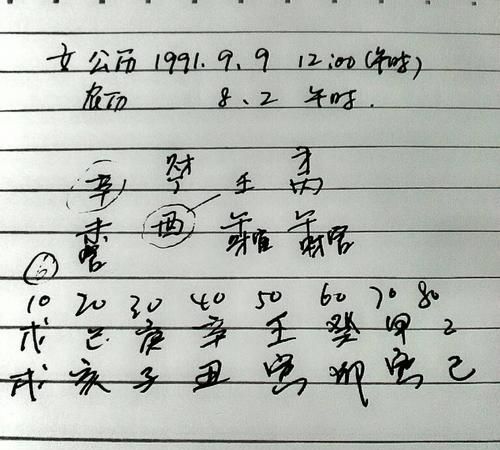 女 公历 1991.9.9 12:00(午时)
农历 8、2 午时.
财 才
辛 丁 壬 丙
未 酉 午 午
官 财官 财官
6
10 20 30 40 50 60 70 80
戊 己 庚 辛 壬 癸 甲 乙
戌 亥 子 丑 寅 卯 寅 己